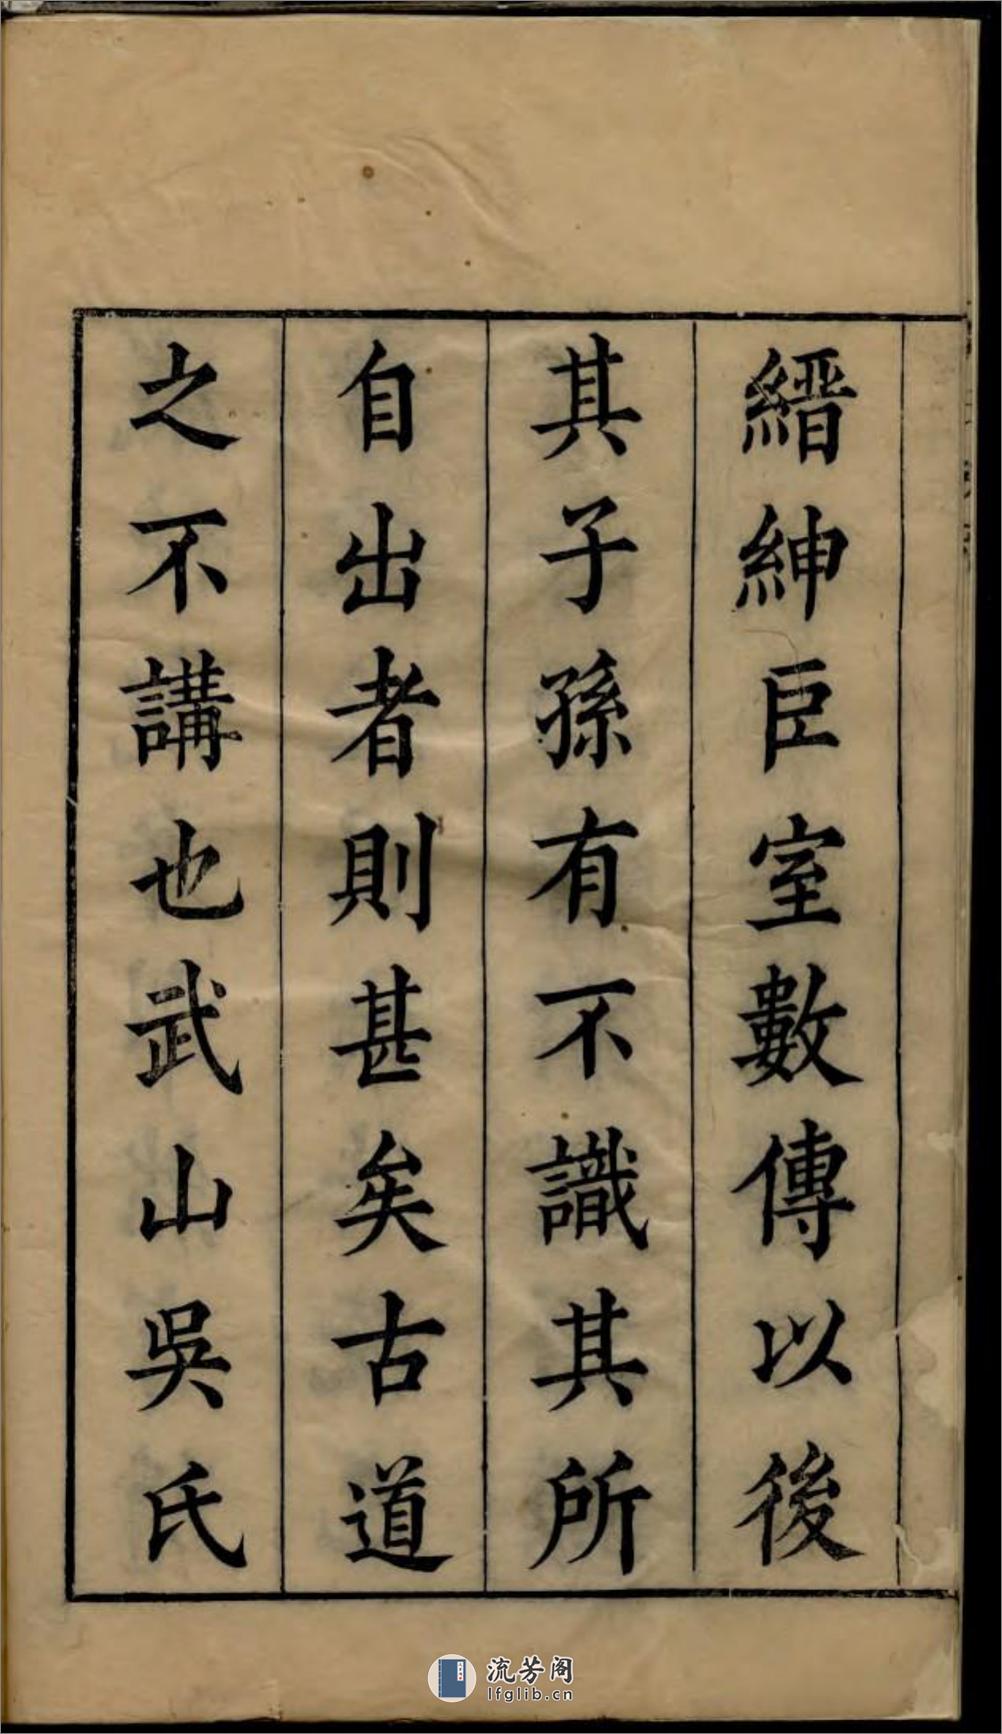 縉紳臣室數傳以後
其子孫有不識其所
自出者則甚矣古道
之不講也武山吳氏
流芳阁
lfglib.cn